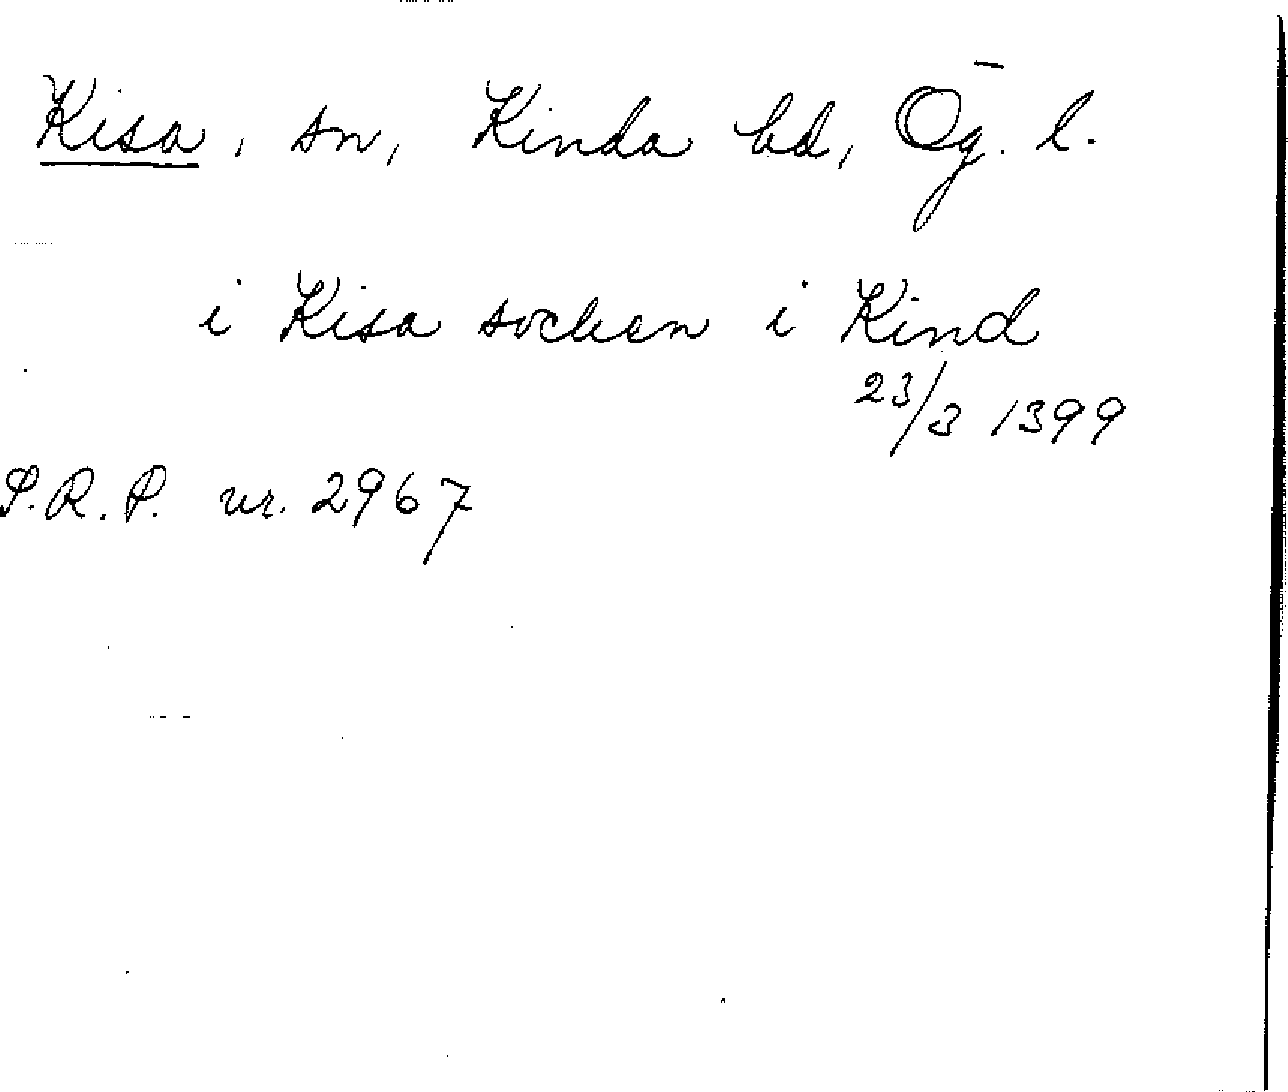 Kisa, sn, Kinda hd, Ög. l.
i Kisa sochen i Kind
23/3 1399
S.R.P. nr. 2967